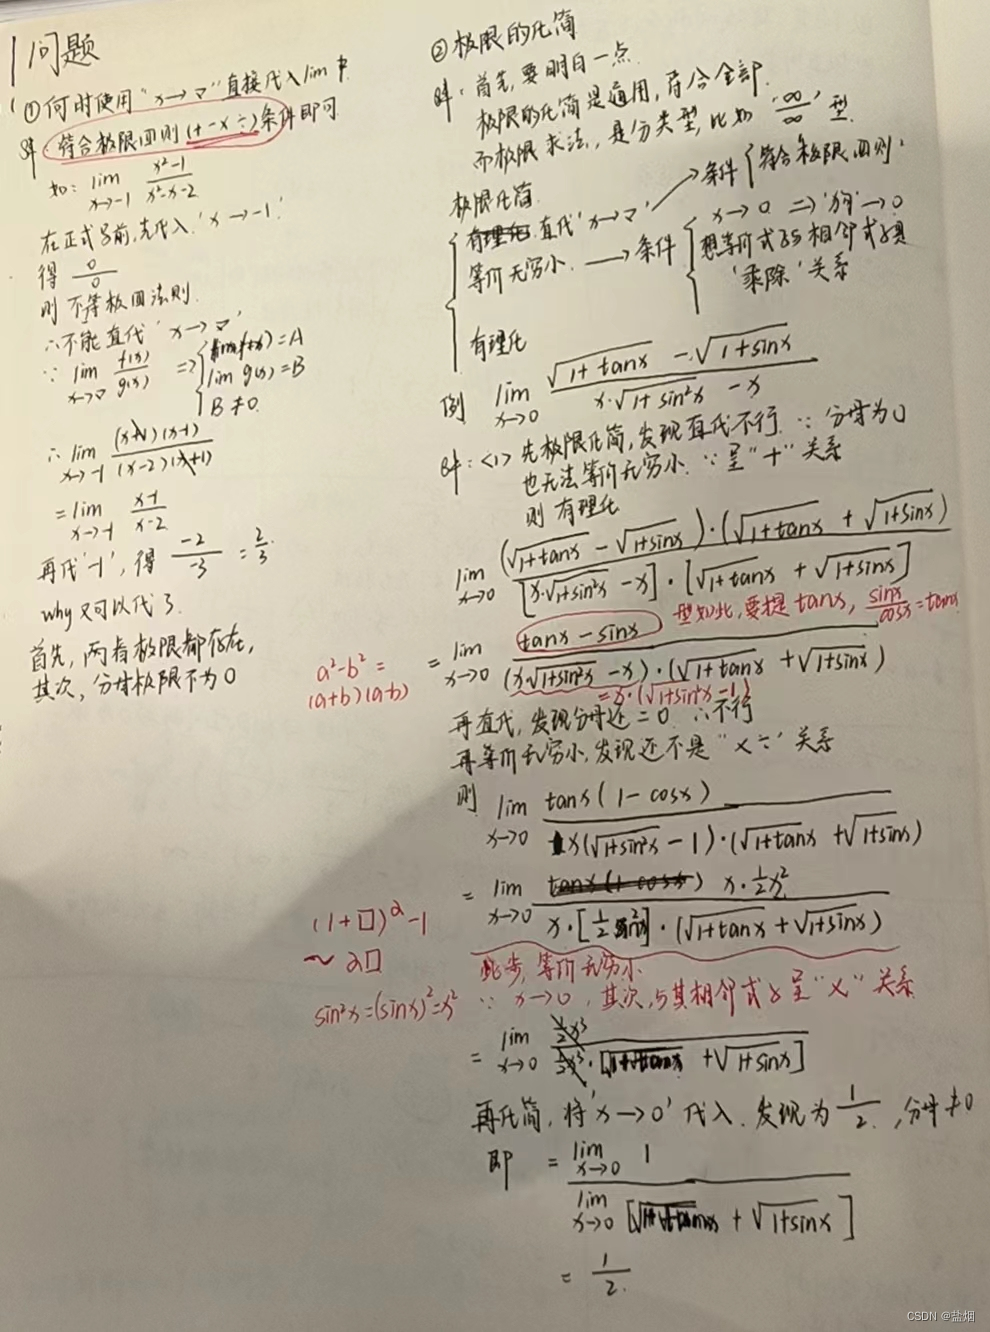 1 问题
① 何时使用“x→▽”直接代入lim中
解: 符合极限四则(+ - × ÷)条件即可.
如: lim x→-1 (x²-1)/(x²-x-2)
在正式写前,先代入‘x→-1’.
得 0/0
则 不符极四法则.
∴不能直代‘x→▽’
∵ lim x→▽ f(x)/g(x) ⇒ { lim f(x)=A
lim g(x)=B
B≠0.
∴ lim x→-1 (x+1)(x-1)/(x-2)(x+1)
= lim x→-1 (x-1)/(x-2)
再代‘-1’, 得 -2/-3 = 2/3.
why 又可以代了.
首先, 两者极限都存在,
其次, 分母极限不为0
② 极限的化简
解: 首先, 要明白一点.
极限的化简是通用, 符合全部.
而极限求法, 是分类型, 比如“∞/∞”型
极限化简
直代‘x→▽’ → 条件 { 符合极限四则.
等价无穷小. → 条件 { x→0 ⇒ ‘狗’→0
想等价式子与相邻式子是
‘乘除’关系
有理化
例 lim x→0 (√(1+tanx) - √(1+sinx))/(x·√(1+sin²x) - x)
解: <1> 先极限化简, 发现直代不行. ∵ 分母为0
也无法等价无穷小. ∵ 呈“+”关系
则 有理化
lim x→0 (√(1+tanx) - √(1+sinx))·(√(1+tanx) + √(1+sinx))/[x·√(1+sin²x) - x]·[√(1+tanx) + √(1+sinx)]
型如此, 要提tanx, sinx/cosx = tanx
a²-b² =
(a+b)(a-b)
= lim x→0 (tanx - sinx)/(x√(1+sin²x) - x)·(√(1+tanx) + √(1+sinx))
= x·(√(1+sin²x) - 1)
再直代, 发现分母还=0 ∴不行
再等价无穷小, 发现还不是“× ÷”关系
则 lim x→0 tanx(1-cosx)/x(√(1+sin²x) - 1)·(√(1+tanx) + √(1+sinx))
= lim x→0 x·½x²/x·[½sin²x]·(√(1+tanx) + √(1+sinx))
(1+□)^α - 1
~ α□
sin²x=(sinx)²=x²
此步, 等价无穷小
∵ x→0, 其次, 与其相邻式子呈“×”关系
= lim x→0 ½x³/½x³·[√(1+tanx) + √(1+sinx)]
再化简, 将‘x→0’代入. 发现为 1/2, 分母≠0
即 = lim x→0 1/lim x→0 [√(1+tanx) + √(1+sinx)]
= 1/2.
CSDN @盐烟